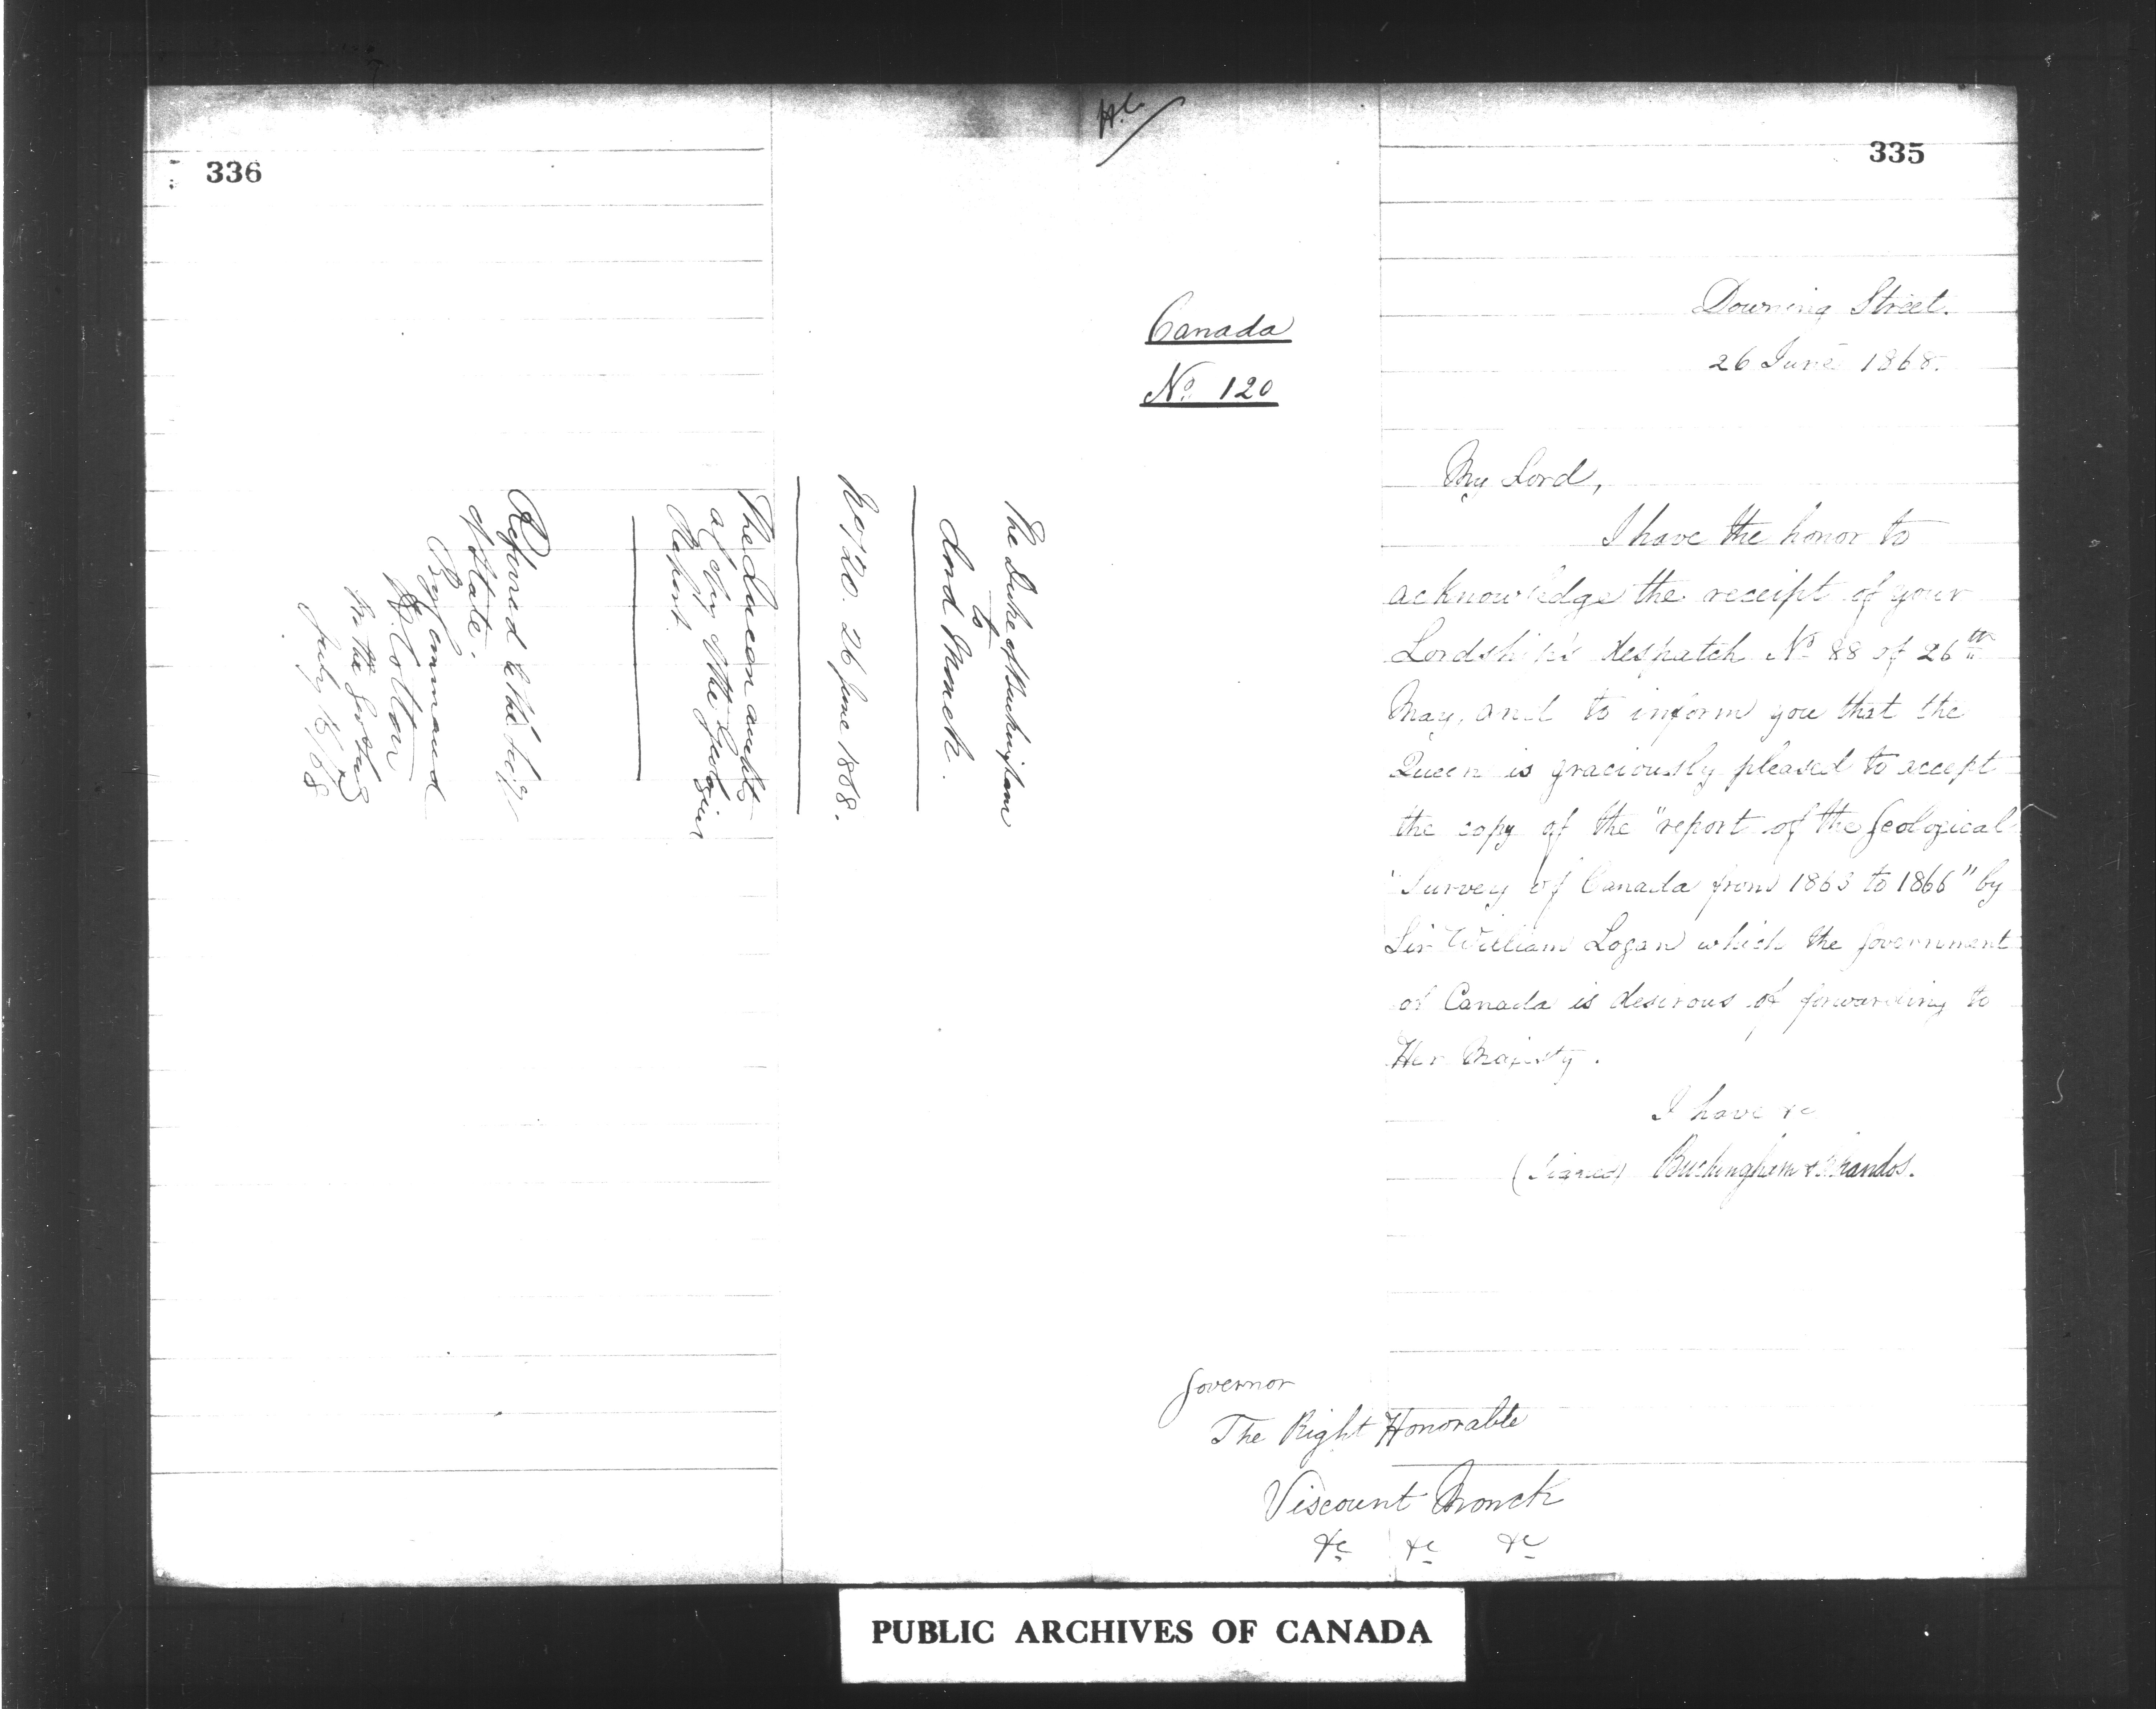 H.C.
335
Canada
No. 120
Downing Street.
26 June 1868.
My Lord,
I have the honor to
acknowledge the receipt of your
Lordship's despatch No. 88 of 26th
May, and to inform you that the
Queen is graciously pleased to accept
the copy of the "report of the Geological
"Survey of Canada from 1863 to 1866" by
Sir William Logan which the Government
of Canada is desirous of forwarding to
Her Majesty.
I have &c
(Signed) Buckingham & Chandos.
Governor
The Right Honorable
Viscount Monck
&c &c &c
336
The Duke of Buckingham
to
Lord Monck.
No 120. 26 June 1868.
The Queen accepts
a copy of the
Report.
Referred to the Secy
of State.
By Command
For the Govr's Secretary
July 13/68
PUBLIC ARCHIVES OF CANADA